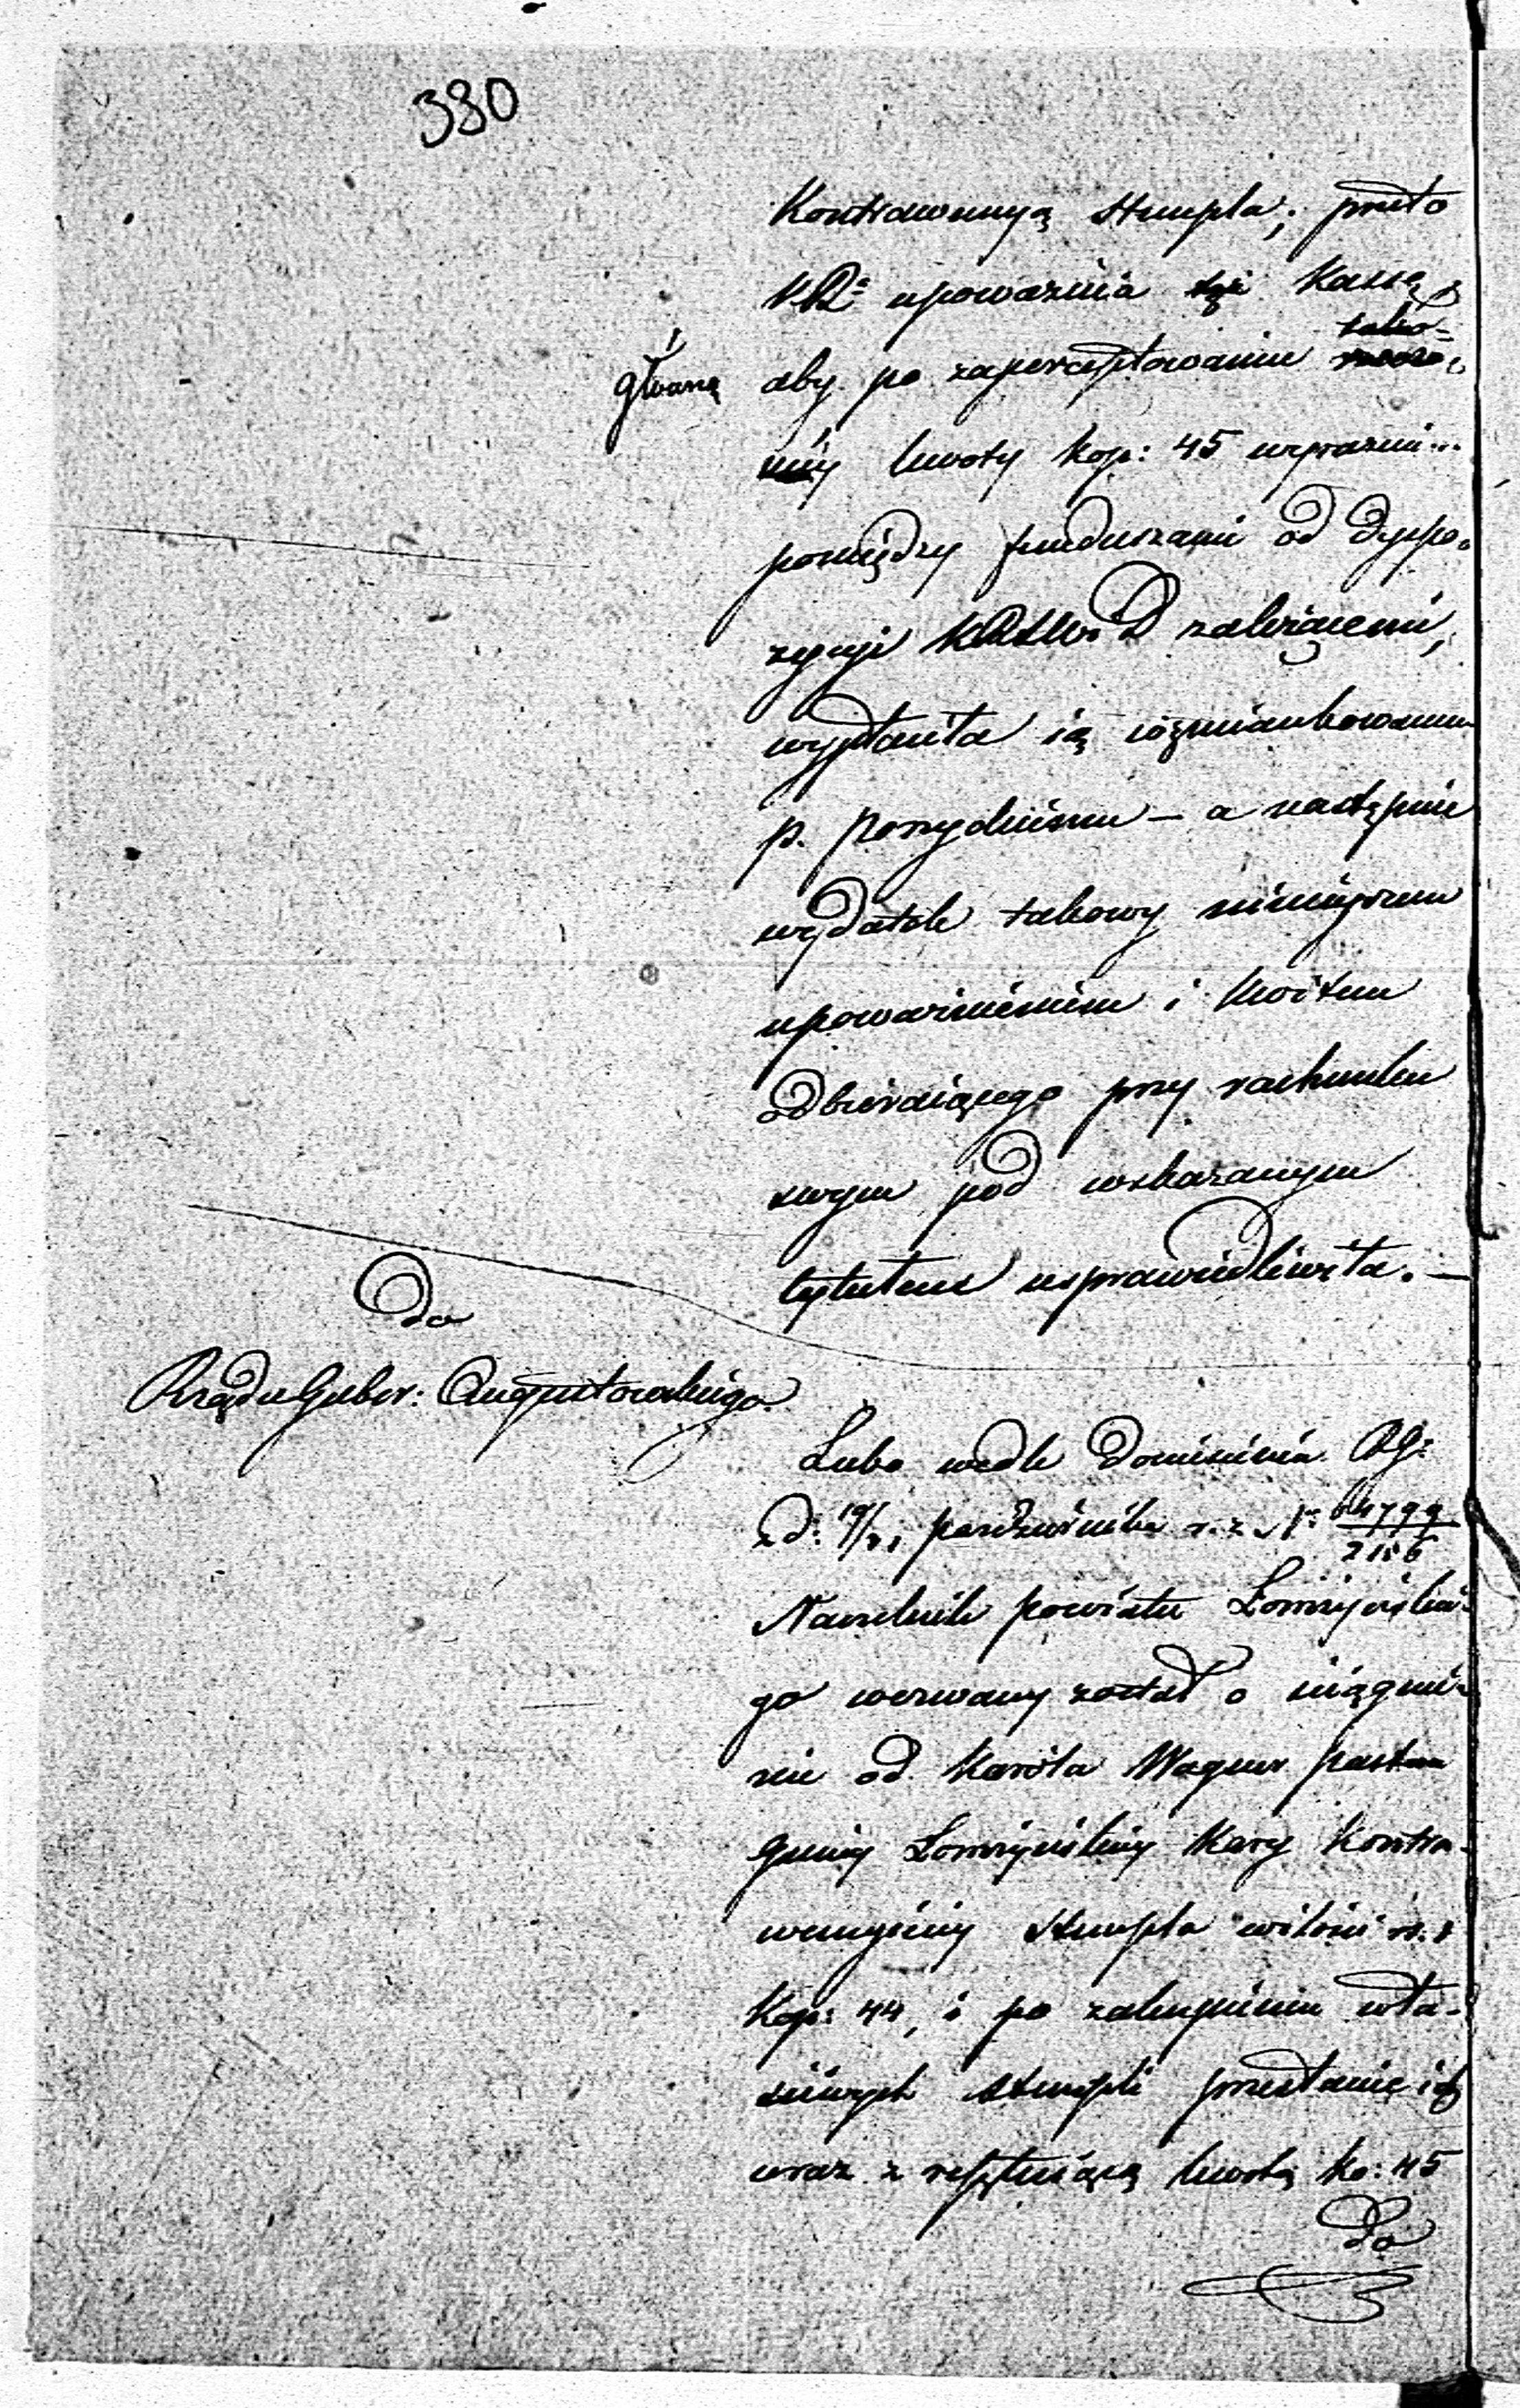 380
Kontrawencyą stempla; przeto
KR: upoważnia Kassę
Główną
aby po zaperceptowaniu tako-
wéy kwoty kop: 45
pomiędzy funduszami od dyspo-
zycyi KRSWiD zależącemi,
wypłaciła ią wzmiankowanemu
p. – a następnie
wydatek takowy ninieyszem
upoważnieniem i kwitem
odbieraiącego przy rachunku
swym pod wskazanym
tytułem usprawiedliwiła. –
Do
Rządu Guber: Augustowskiego.
Lubo wedle doniesienia RG:
z d: 19/31 październiku r. z. N:
Naczelnik powiatu Łomżyńskie-
go wezwany został o ściągnie-
nie od Karola Wagner pastora
gminy Łomżyńskiey kary kontra-
wencyiney stempla w ilości rs. 1
Kop: 44, i po zakupieniu wła-
ściwych stempli przesłanie ich
wraz z resztuiącą kwotą ko: 45
Do